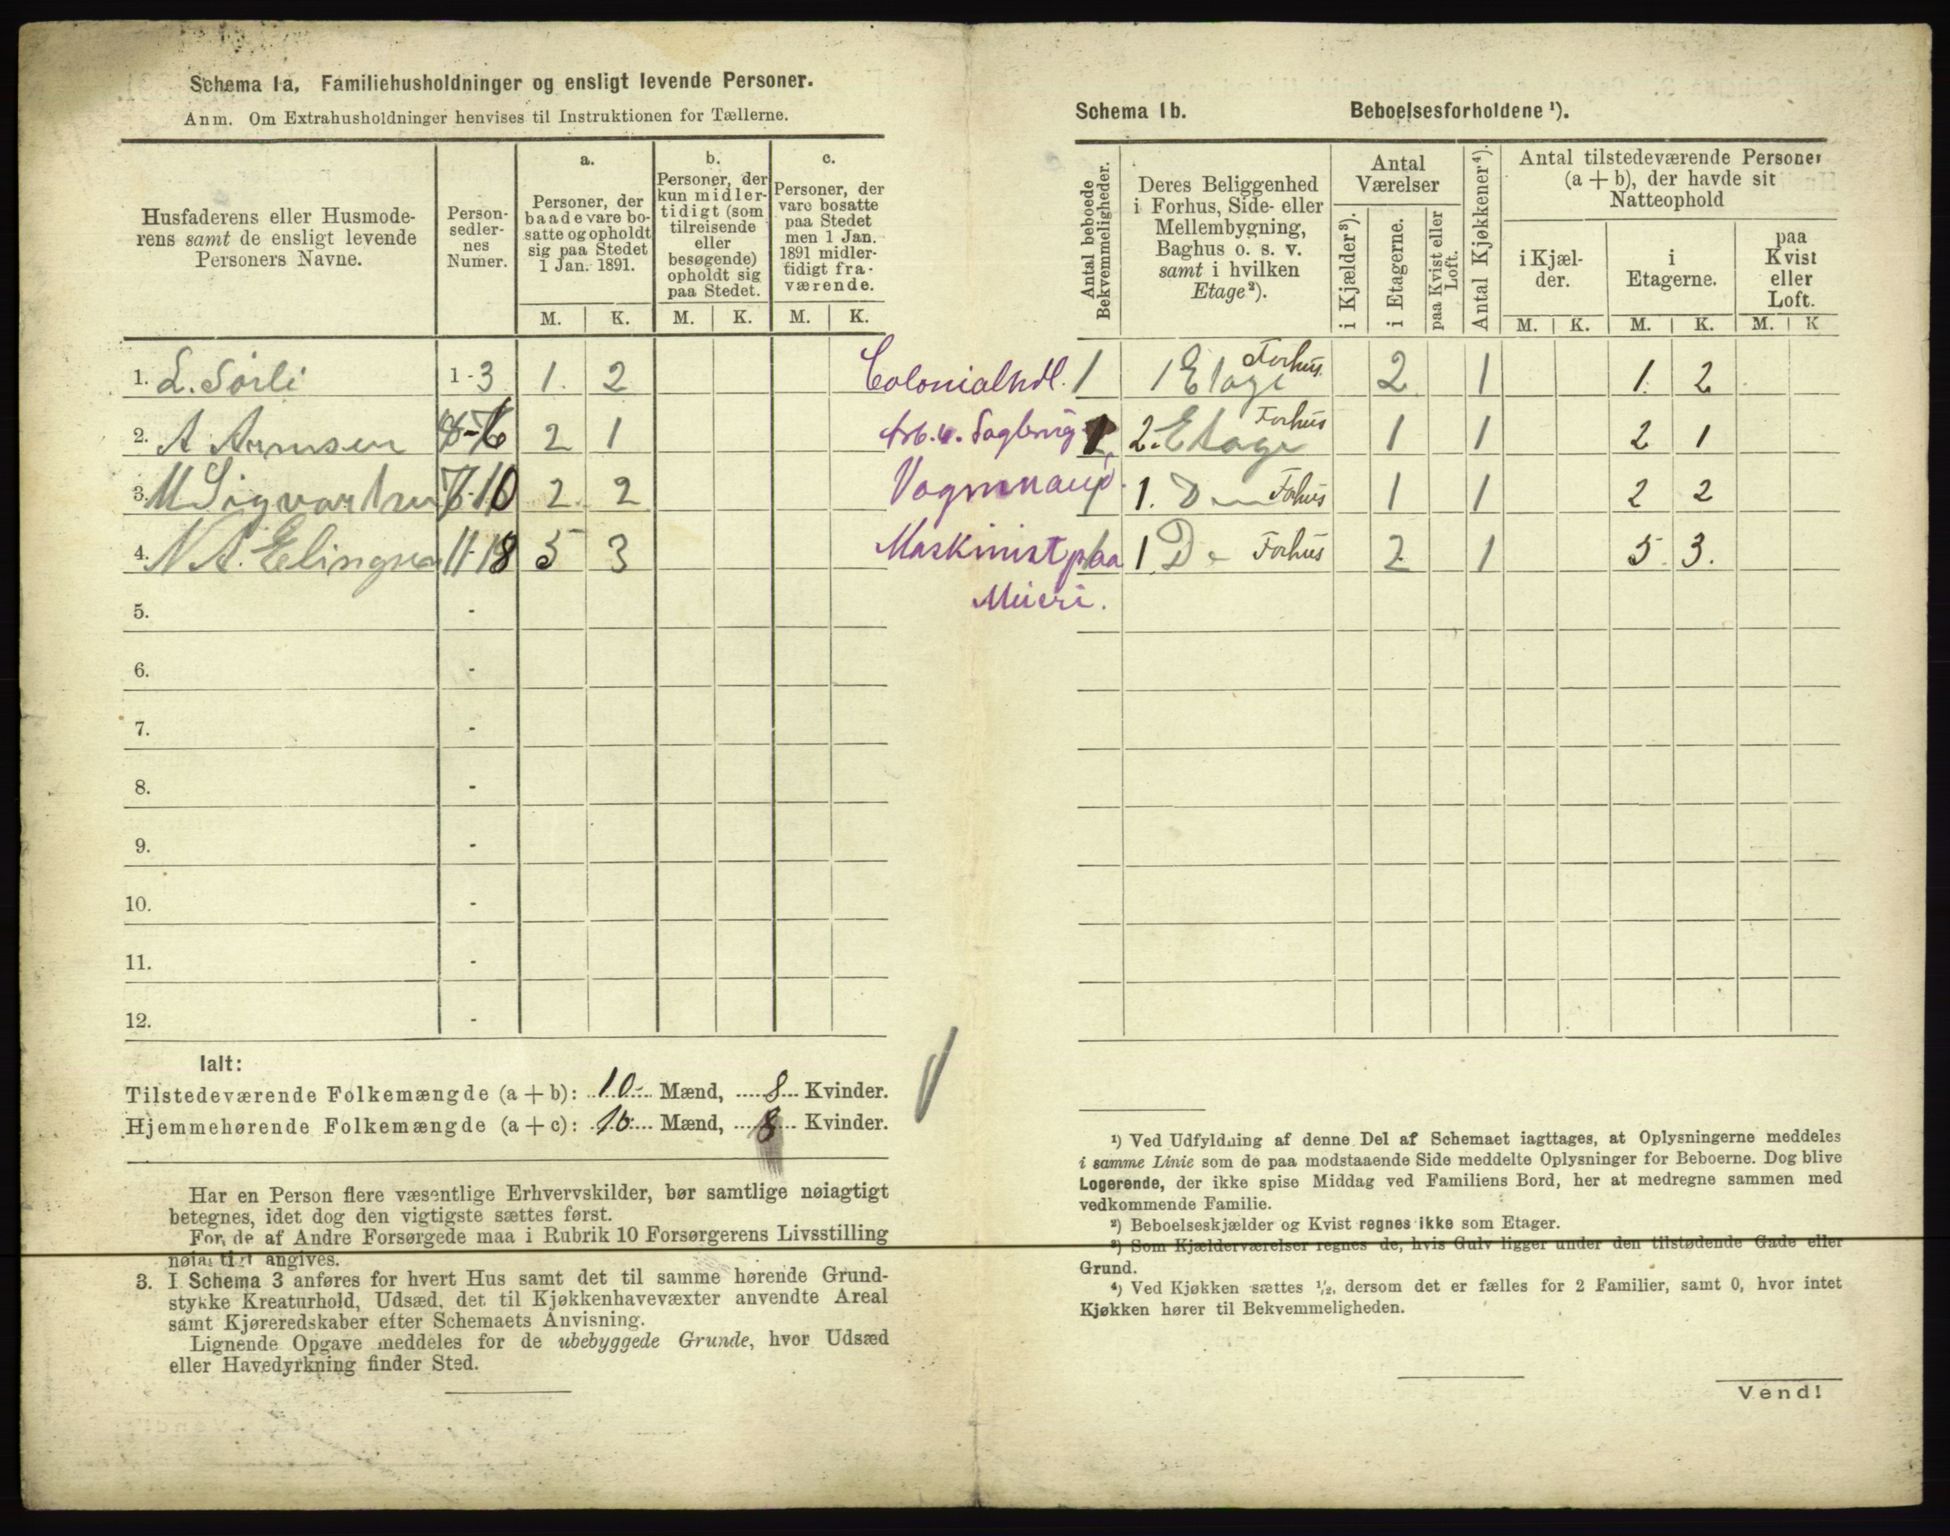 Schema 1a. Familiehusholdninger og ensligt levende Personer.
Anm. Om Extrahusholdninger henvises til Instruktionen for Tællerne.
Husfaderens eller Husmoderens samt de ensligt levende Personers Navne.
Personsedlernes Numer.
a. Personer, der baade vare bosatte og opholdt sig paa Stedet 1 Jan. 1891.
b. Personer, der kun midlertidigt (som tilreisende eller besøgende) opholdt sig paa Stedet.
c. Personer, der vare bosatte paa Stedet men 1 Jan. 1891 midlertidigt fraværende.
M. K. M. K. M. K.
1. L. Sørli 1-3 1. 2 Colonialhdl.
2. A Arnsen 2 1 Arb. v. Sagbrug
3. M Sigvartsen 7-10 2. 2 Vognmand.
4. N A. Elingsen 11-18 5 3 Maskinist paa
Mieri.
5. -
6. -
7. -
8. -
9. -
10. -
11. -
12. -
Ialt:
Tilstedeværende Folkemængde (a + b): 10 Mænd, 8 Kvinder.
Hjemmehørende Folkemængde (a + c): 10 Mænd, 8 Kvinder.
Har en Person flere væsentlige Erhvervskilder, bør samtlige nøiagtigt
betegnes, idet dog den vigtigste sættes først.
For de af Andre Forsørgede maa i Rubrik 10 Forsørgerens Livsstilling
nøiagtigt angives.
3. I Schema 3 anføres for hvert Hus samt det til samme hørende Grund-
stykke Kreaturhold, Udsæd, det til Kjøkkenhavevæxter anvendte Areal
samt Kjøreredskaber efter Schemaets Anvisning.
Lignende Opgave meddeles for de ubebyggede Grunde, hvor Udsæd
eller Havedyrkning finder Sted.
Schema 1b. Beboelsesforholdene ¹).
Antal beboede Bekvemmeligheder.
Deres Beliggenhed i Forhus, Side- eller Mellembygning, Baghus o. s. v. samt i hvilken Etage²).
Antal Værelser
i Kjælder³).
i Etagerne.
paa Kvist eller Loft.
Antal Kjøkkener⁴).
Antal tilstedeværende Personer (a + b), der havde sit Natteophold
i Kjælder.
i Etagerne.
paa Kvist eller Loft.
M. K. M. K. M. K
1 1 Etage Forhus. 2 1 1. 2
1 2. Etage Forhus 1 1 2 1
1 1. Do Forhus 1 1 2 2
1 1 Do Forhus 2 1 5. 3.
¹) Ved Udfyldning af denne Del af Schemaet iagttages, at Oplysningerne meddeles
i samme Linie som de paa modstaaende Side meddelte Oplysninger for Beboerne. Dog blive
Logerende, der ikke spise Middag ved Familiens Bord, her at medregne sammen med
vedkommende Familie.
²) Beboelseskjælder og Kvist regnes ikke som Etager.
³) Som Kjælderværelser regnes de, hvis Gulv ligger under den tilstødende Gade eller
Grund.
⁴) Ved Kjøkken sættes ½, dersom det er fælles for 2 Familier, samt 0, hvor intet
Kjøkken hører til Bekvemmeligheden.
Vend!